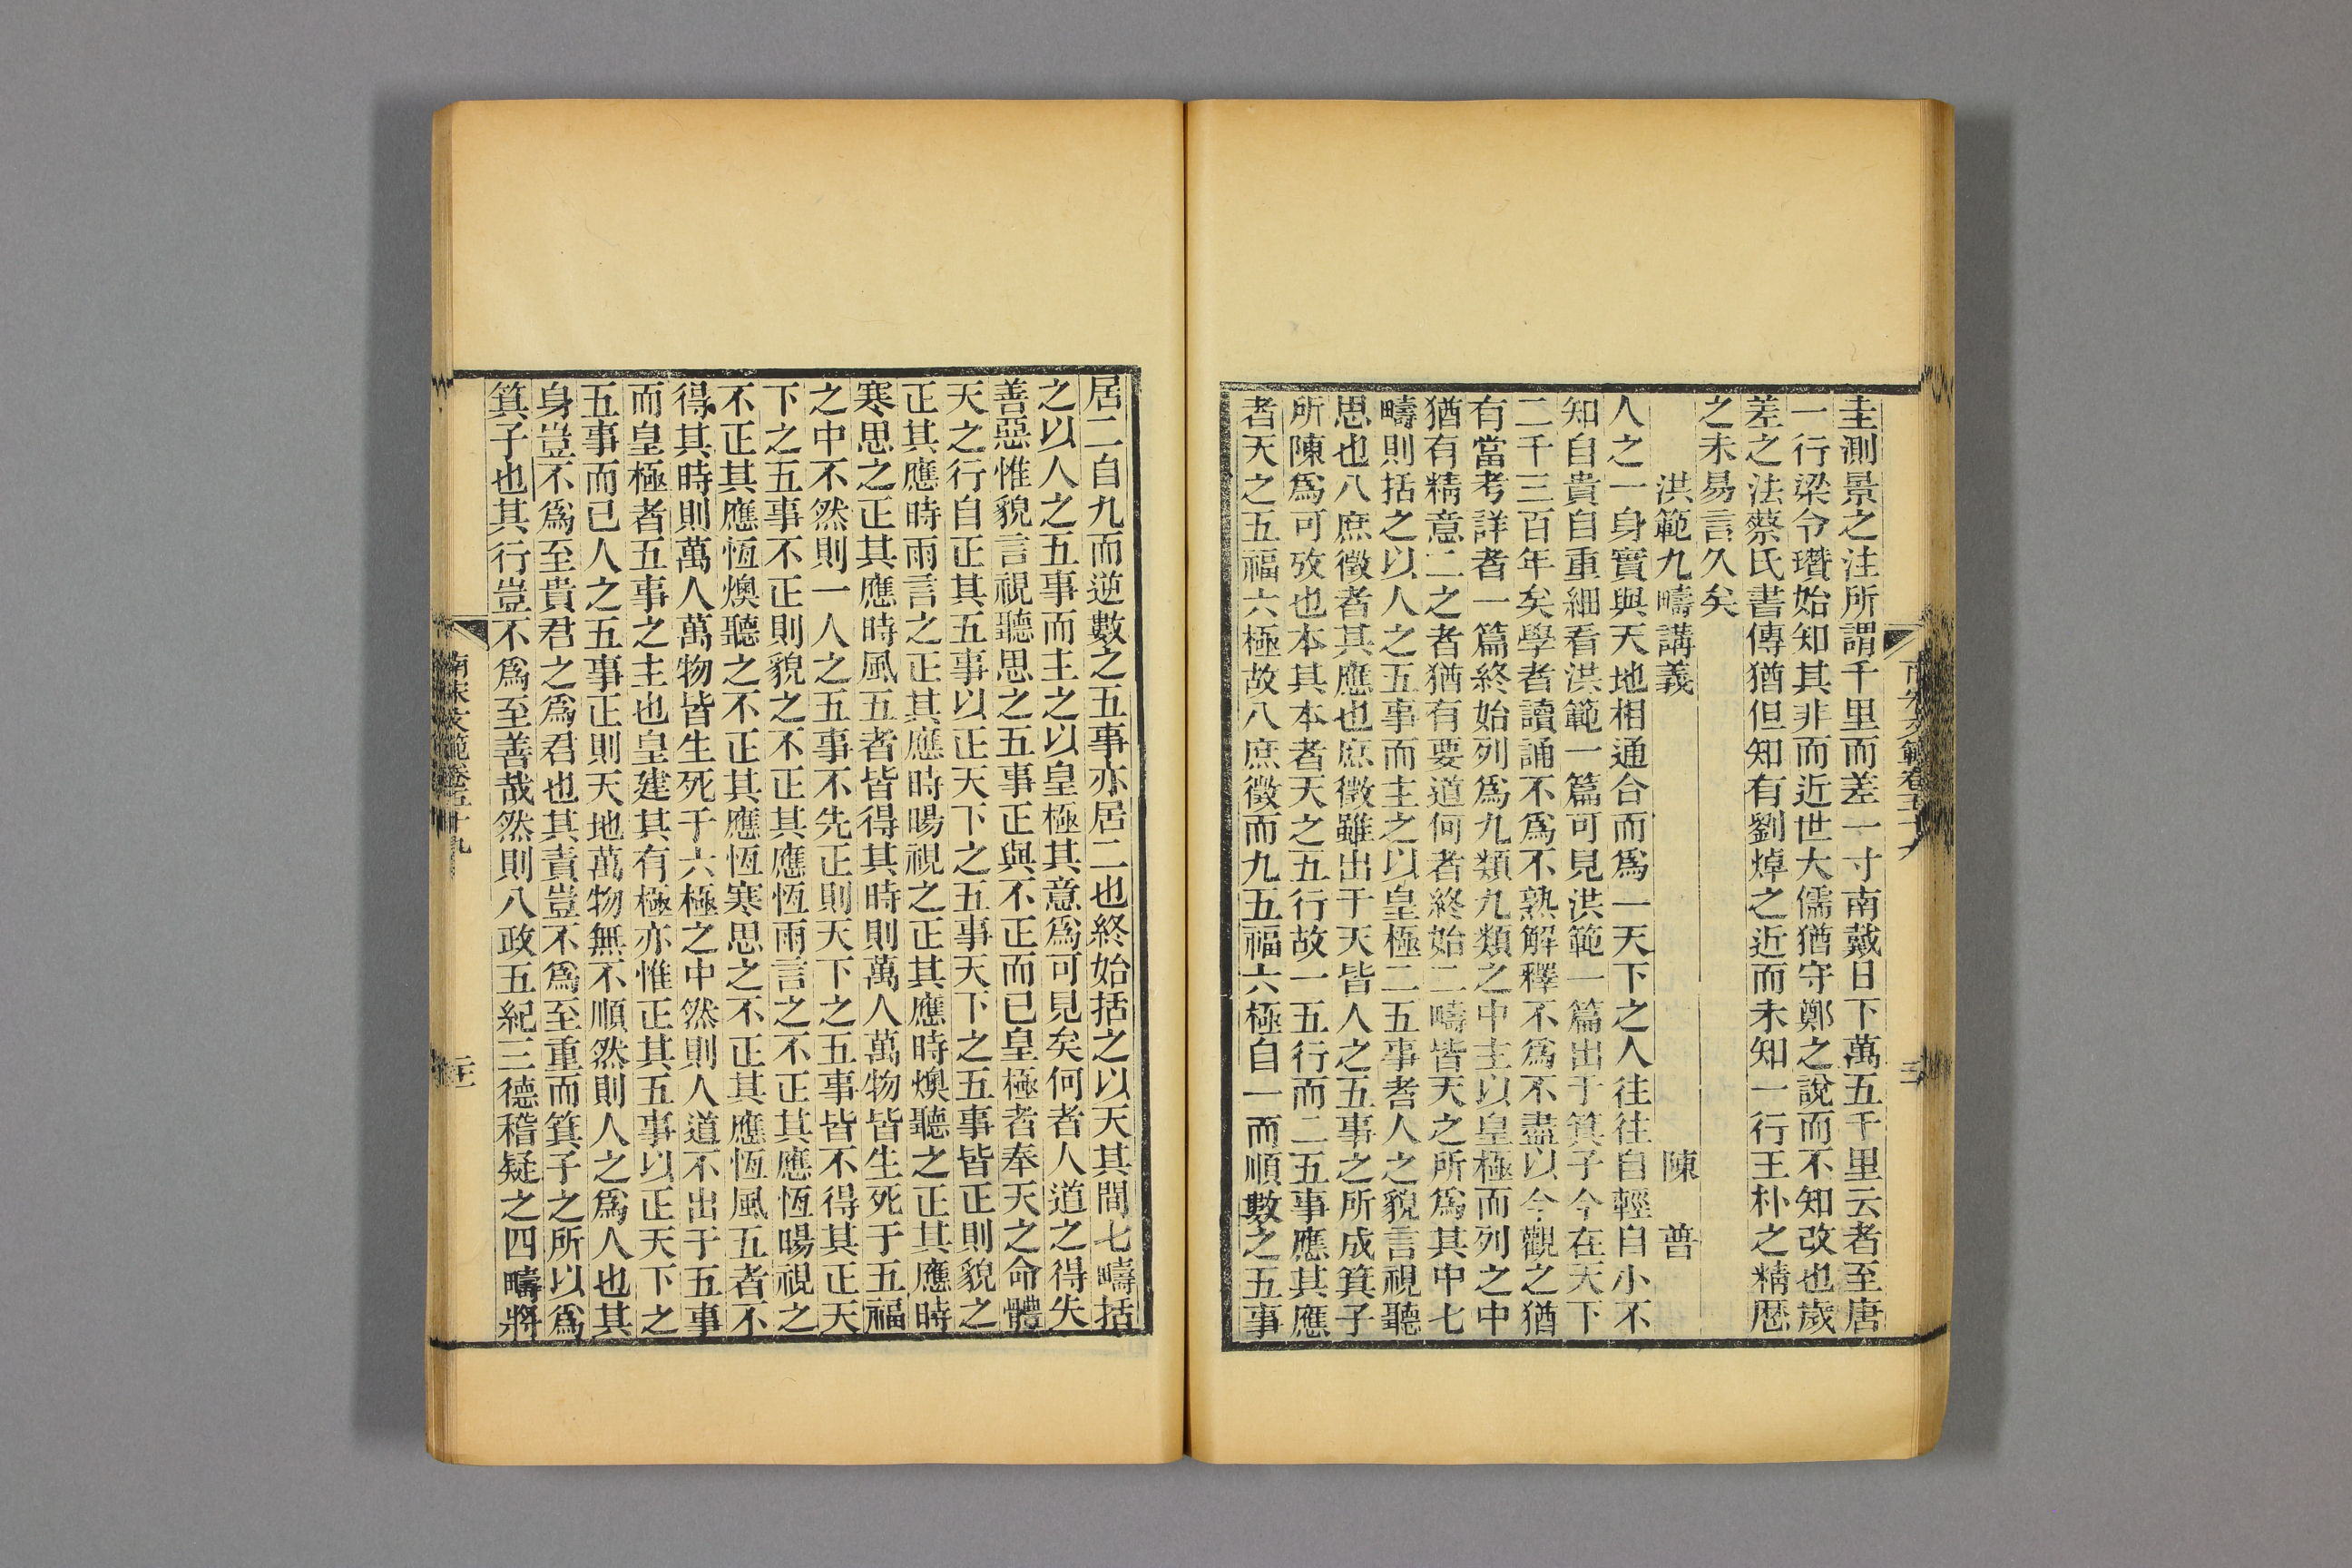 圭測景之注所謂千里而差一寸南戴日下萬五千里云者至唐
一行梁令瓚始知其非而近世大儒猶守鄭之說而不知改也歲
差之法蔡氏書傳猶但知有劉焯之近而未知一行王朴之精曆
之未易言久矣
洪範九疇講義 陳 普
人之一身實與天地相通合而爲一天下之人往往自輕自小不
知自貴自重細看洪範一篇可見洪範一篇出于箕子今在天下
二千三百年矣學者讀誦不爲不熟解釋不爲不盡以今觀之猶
有當考詳者一篇終始列爲九類九類之中主以皇極而列之中
猶有精意二之者猶有要道何者終始二疇皆天之所爲其中七
疇則括之以人之五事而主之以皇極二五事者人之貌言視聽
思也八庶徵者其應也庶徵雖出于天皆人之五事之所成箕子
所陳爲可攷也本其本者天之五行故一五行而二五事應其應
者天之五福六極故八庶徵而九五福六極自一而順數之五事
居二自九而逆數之五事亦居二也終始括之以天其間七疇括
之以人之五事而主之以皇極其意爲可見矣何者人道之得失
善惡惟貌言視聽思之五事正與不正而已皇極者奉天之命體
天之行自正其五事以正天下之五事天下之五事皆正則貌之
正其應時雨言之正其應時暘視之正其應時燠聽之正其應時
寒思之正其應時風五者皆得其時則萬人萬物皆生死于五福
之中不然則一人之五事不先正則天下之五事皆不得其正天
下之五事不正則貌之不正其應恆雨言之不正其應恆暘視之
不正其應恆燠聽之不正其應恆寒思之不正其應恆風五者不
得其時則萬人萬物皆生死于六極之中然則人道不出于五事
而皇極者五事之主也皇建其有極亦惟正其五事以正天下之
五事而已人之五事正則天地萬物無不順然則人之爲人也其
身豈不爲至貴君之爲君也其責豈不爲至重而箕子之所以爲
箕子也其行豈不爲至善哉然則八政五紀三德稽疑之四疇將
南宋文範卷五十九